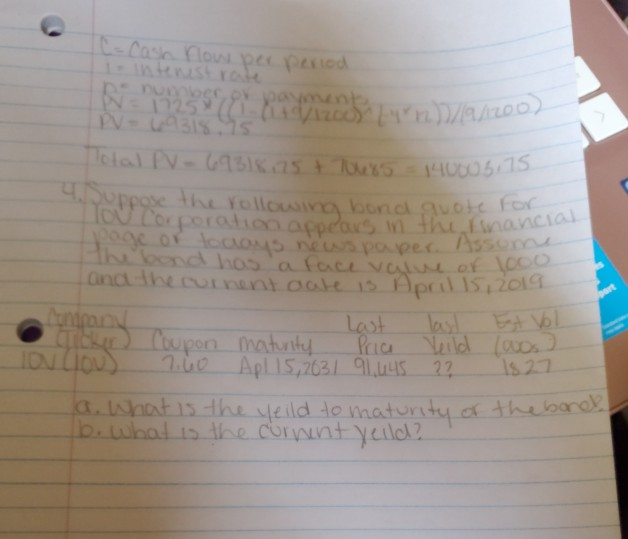 C = Cash Flow per period
i = interest rate
n = number of payments
PV = 1725 * ((1 - (1+9/1200)^(-4*12))/(9/1200)
PV = 69318.75
Total PV = 69318.75 + 70685 = 140003.75
4. Suppose the following bond quote for
IOU Corporation appears in the financial
page of todays newspaper. Assume
the bond has a face value of 1000
and the current date is April 15, 2019
Company
(Ticker) Coupon maturity Last Price last Yeild Est Vol (000s)
IOU (IOU) 7.60 Apl 15, 2031 91.645 ?? 1827
a. What is the yeild to maturity of the bond?
b. What is the current yeild?